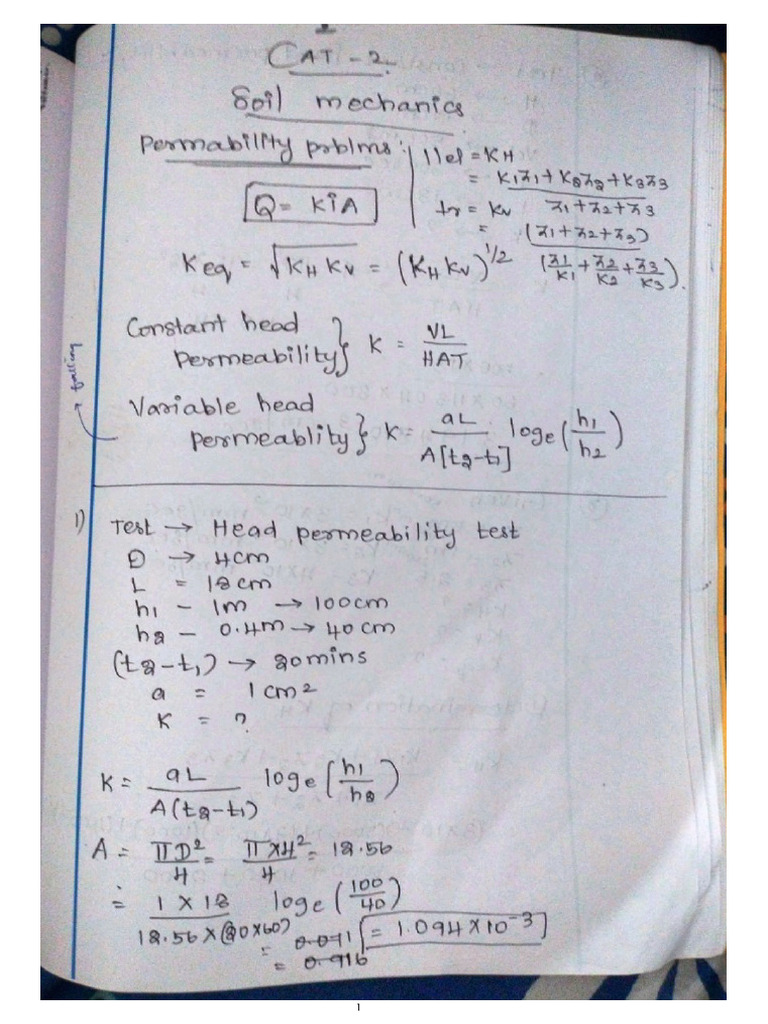 CAT-2
Soil mechanics
Permability prblms:
llel = KH
= K1Z1+K2Z2+K3Z3
Z1+Z2+Z3
Q = KiA
tr = Kv
= (Z1+Z2+Z3)
(Z1/K1 + Z2/K2 + Z3/K3).
Keq = √KH KV = (KH KV)^1/2
Constant head
Permeability} K = VL/HAT
falling
Variable head
permeablity} K = aL/A[t2-t1] loge (h1/h2)
1) Test → Head permeability test
D → 4cm
L = 18cm
h1 - 1m → 100cm
h2 - 0.4m → 40cm
(t2-t1) → 20mins
a = 1cm2
K = ?
K = aL/A(t2-t1) loge (h1/h2)
A = πD²/4 = π×4²/4 = 12.56
= 1×18/12.56×(20×60) loge (100/40)
= 0.091 = 1.094×10⁻³
= 0.916
1